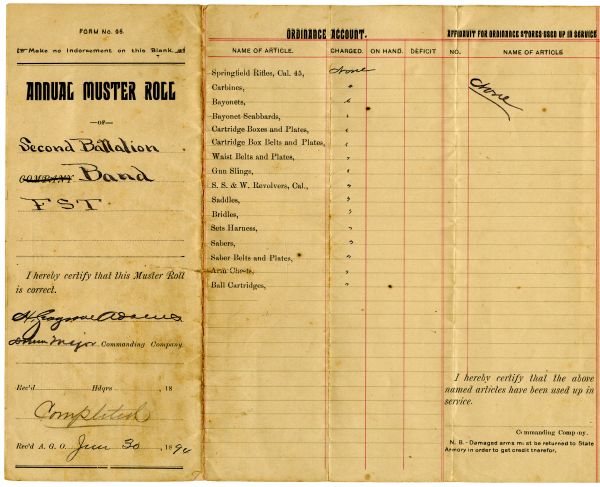 FORM No. 66.
Make no Indorsement on this Blank.
ANNUAL MUSTER ROLL
—OF—
Second Battalion
COMPANY Band
FST.
I hereby certify that this Muster Roll
is correct.
Adams
Drum Major Commanding Company.
Rec'd Hdqrs , 18
Completed
Rec'd A. G. O. June 30 , 189
ORDINANCE ACCOUNT.
NAME OF ARTICLE. CHARGED. ON HAND. DEFICIT
Springfield Rifles, Cal. 45, None
Carbines, "
Bayonets, "
Bayonet Scabbards, "
Cartridge Boxes and Plates, "
Cartridge Box Belts and Plates, "
Waist Belts and Plates, "
Gun Slings, "
S. S. & W. Revolvers, Cal., "
Saddles, "
Bridles, "
Sets Harness, "
Sabers, "
Saber Belts and Plates, "
Arm Chests, "
Ball Cartridges, "
AFFIDAVIT FOR ORDINANCE STORES USED UP IN SERVICE
NO. NAME OF ARTICLE
None
I hereby certify that the above
named articles have been used up in
service.
Commanding Company.
N. B.-Damaged arms must be returned to State
Armory in order to get credit therefor.